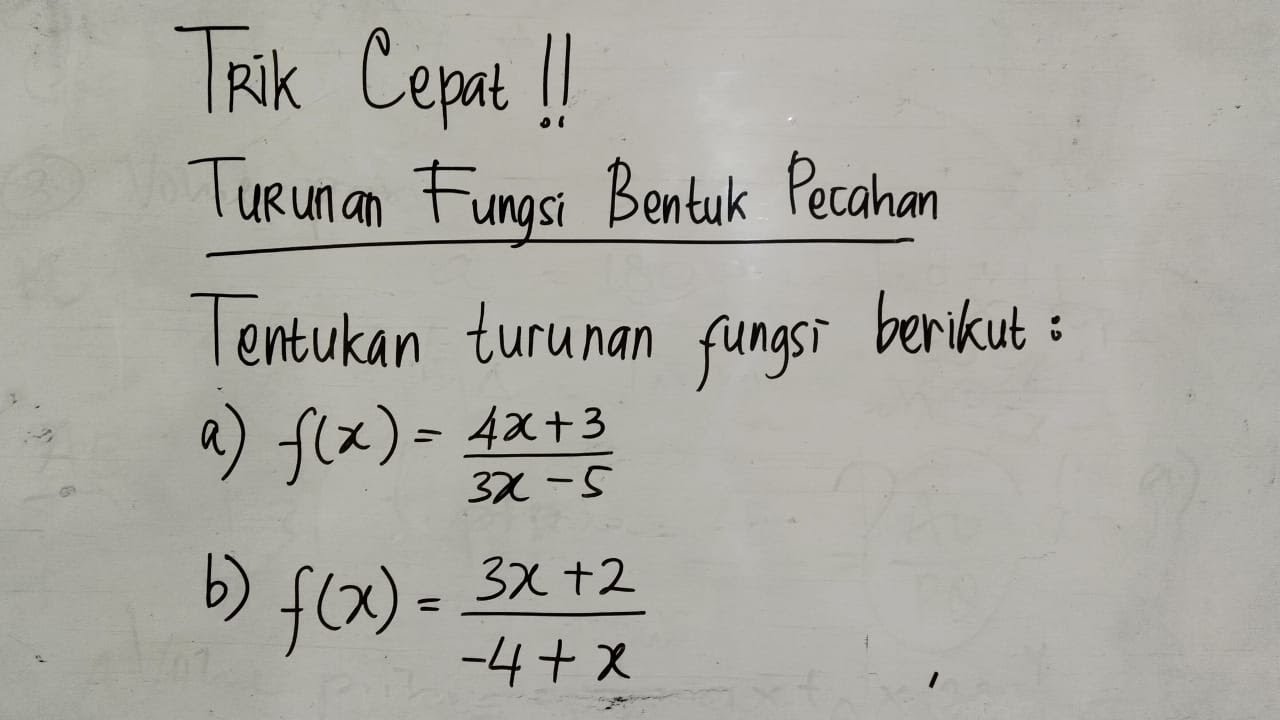 Trik Cepat !!
Turunan Fungsi Bentuk Pecahan
Tentukan turunan fungsi berikut :
a) f(x) = 4x+3 / 3x-5
b) f(x) = 3x+2 / -4+x